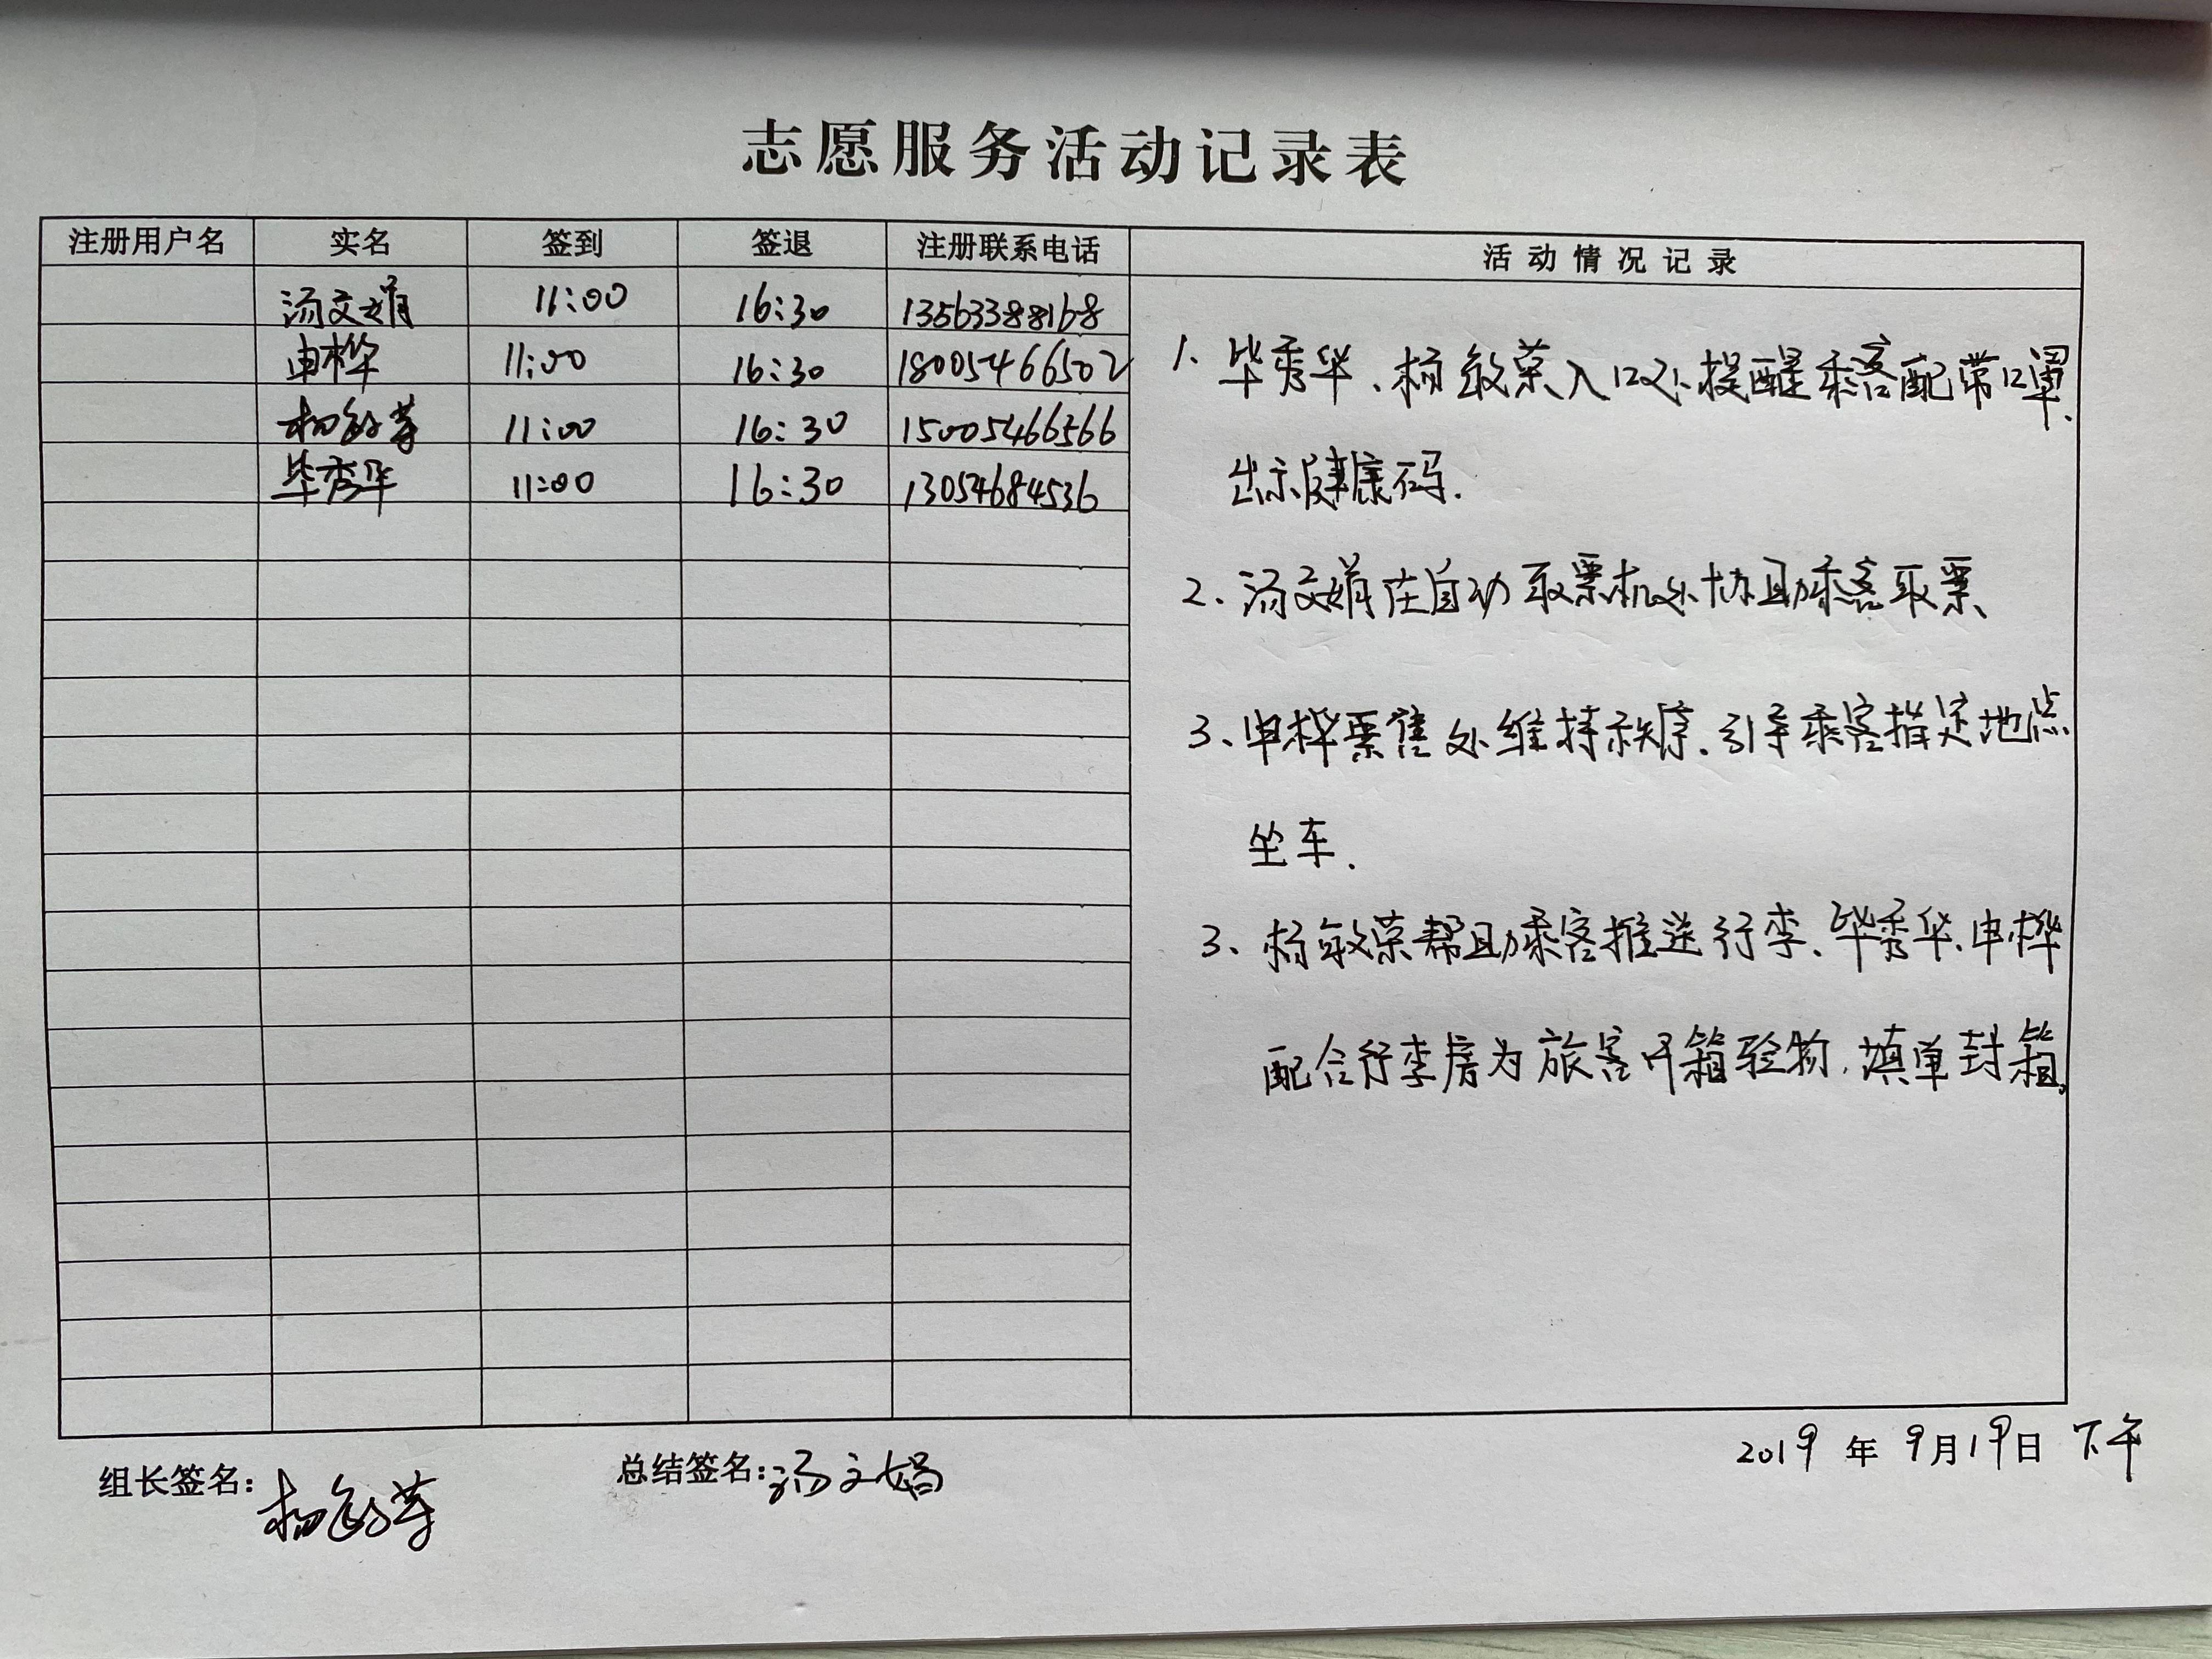 志愿服务活动记录表
注册用户名 实名 签到 签退 注册联系电话 活动情况记录
汤文娟 11:00 16:30 13563388168
申桦 11:00 16:30 18005466502
杨敏荣 11:00 16:30 15005466566
毕秀华 11:00 16:30 13054684536
1、毕秀华、杨敏荣入口处提醒乘客配带口罩.
出示健康码.
2、汤文娟在自动取票机处协助乘客取票、
3、申桦票售处维持秩序.引导乘客指定地点
坐车.
3、杨敏荣帮助乘客推送行李、毕秀华.申桦
配合行李房为旅客开箱验物,填单封箱,
组长签名:杨敏荣 总结签名:汤文娟 2019年9月19日 下午